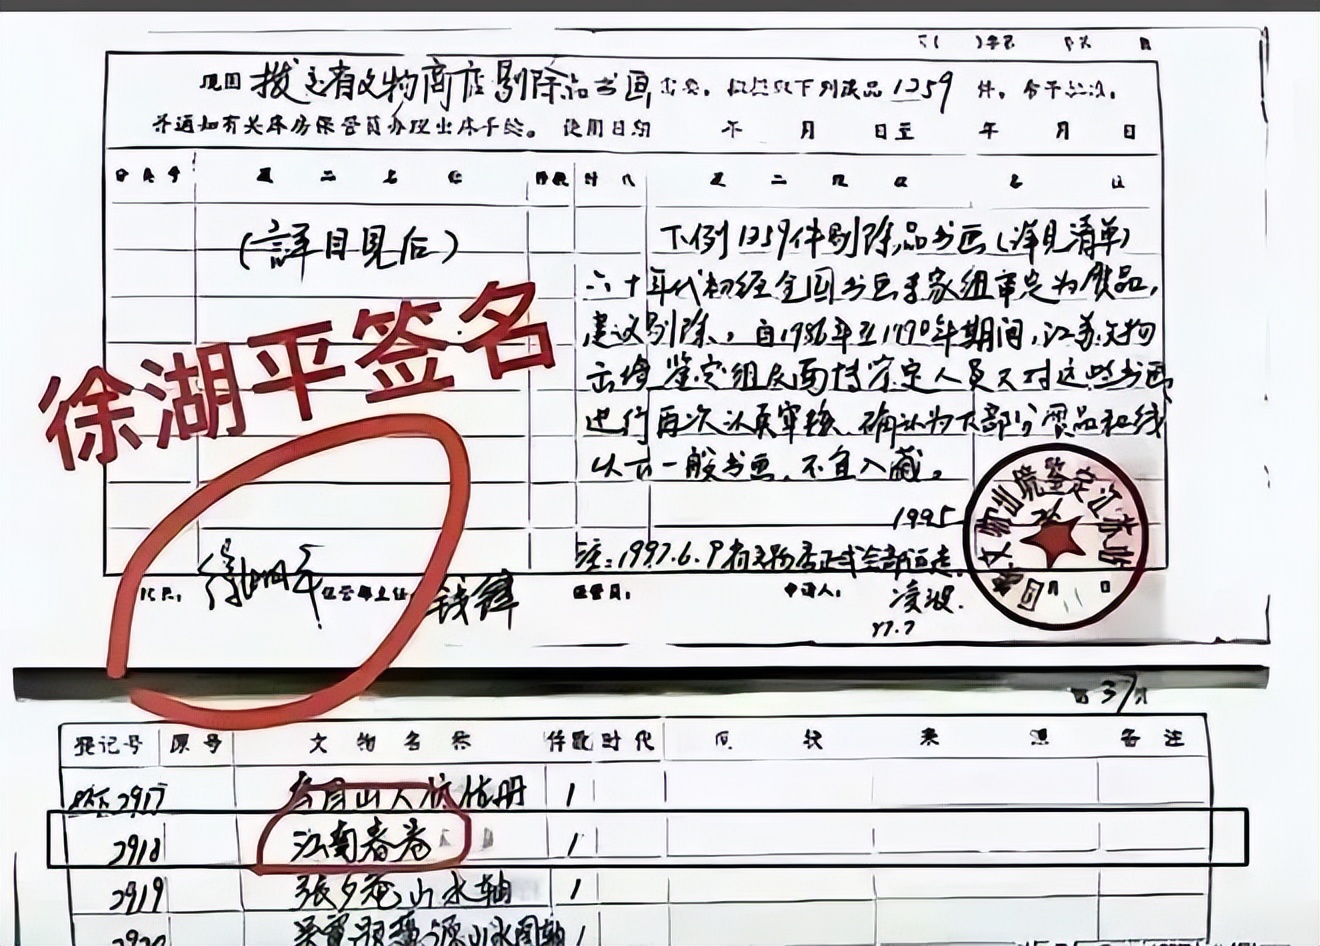 现因 拨交省文物商店剔除品书画 需要，拟提取下列藏品 1259 件，
并通知有关库房保管员办理出库手续。 使用日期 年 月 日至 年 月 日
件数 时代
（詳目見后）
下例1259件剔除品书画（详见清单）
六十年代初经全国书画专家组审定为赝品，
建议剔除。自1986年至1990年期间，江苏文物
出境鉴定组及面特鉴定人员又对这些书画
进行再次认真审核，确认为大部分赝品和线
以下一般书画，不宜入藏。
徐湖平签名
1995
文物出境鉴定江苏站
注：1997.6.9省文物店正式全部运走
徐湖平
钱锋
保管员：
申请人： 凌波.
97.7
第37页
登记号 原号 文物名称 件数 时代 现状 来源 备注
2917 山人 册 1
2918 江南春卷 1
2919 張夕菴山水轴 1
2920 山水图轴 1